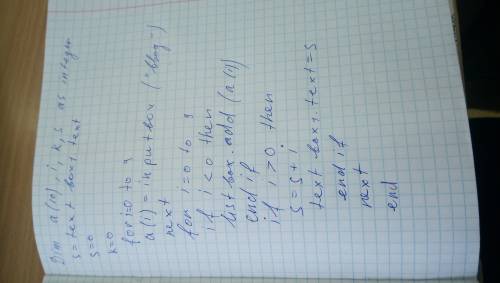 Dim a(10), i, k, s as integer
s = text box1. text
s=0
k=0
for i=0 to 9
a(i) = inputbox ("
next
for i=0 to 9
if i<0 then
list box add (a(i))
end if
if i>0 then
s=s+i
text box1. text=s
end if
next
end